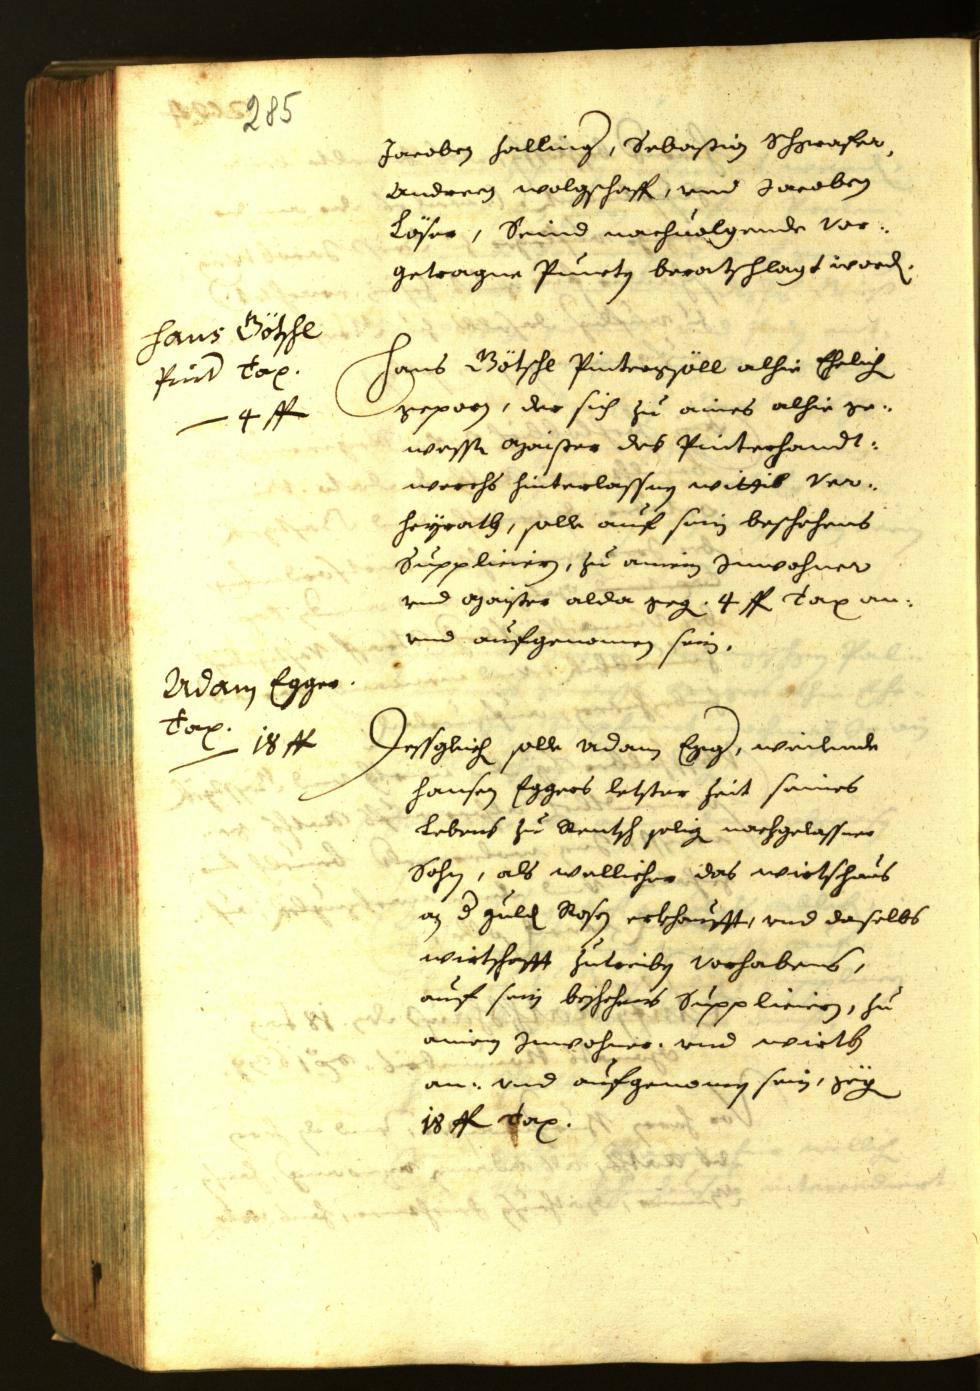 285
Jacoben Halling, Sebastian Schgrafer,
Andreen Wolgschafft, vnd Jacoben
Löser, Seind nachuolgende vor:
getragne Puncty beratschlagt word.
Hans Götschl
Pint Tax.
4 ff
Hans Götschl Pintergsöll alhie Ehelich
geporn, der sich zu aines alhie ge:
west Maister des Pinterhandt:
werchs hinterlassny wittib ver:
heyrath, solle auf sein beschehens
Suppliciern, zu ainem Inwohner
vnd Maister alda geg. 4 ff Tax an:
vnd aufgenomen sein.
Adam Egger.
Tax.
18 ff
Dessgleich solle Adam Egg, weilende
Hansen Eggers letster Zeit seines
Lebens zu Rentsch selig nachgelassner
Sohn, als wellicher das Wirtshaus
an d guld Rosen erkhaufft, vnd daselbs
wirtschafft zutreiben vorhabens,
auf sein beschehens Suppliciern, zu
ainem Inwohner. vnd wirth
an: vnd aufgenomen sein, geg
18 ff Tax.